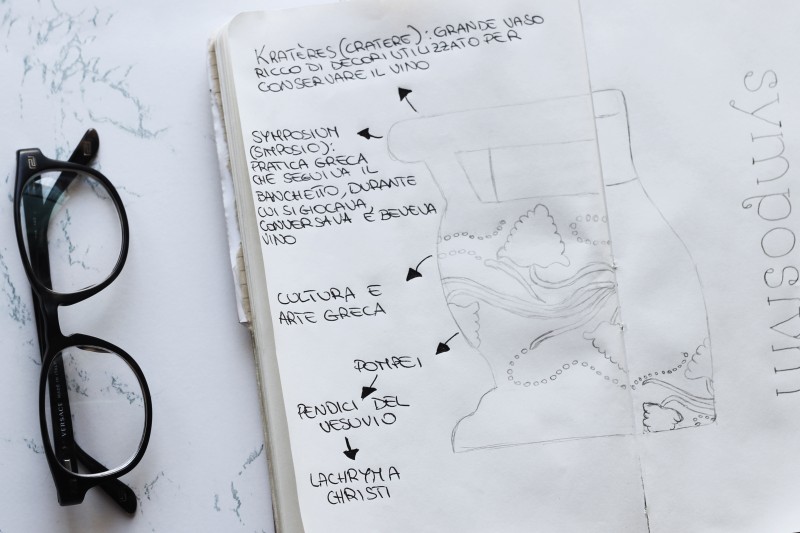 KRATÈRES (CRATERE): GRANDE VASO
RICCO DI DECORI UTILIZZATO PER
CONSERVARE IL VINO
SYMPOSIUM
(SIMPOSIO):
PRATICA GRECA
CHE SEGUIVA IL
BANCHETTO, DURANTE
CUI SI GIOCAVA,
CONVERSAVA E BEVEVA
VINO
CULTURA E
ARTE GRECA
POMPEI
PENDICI DEL
VESUVIO
LACHRYMA
CHRISTI
symposium
VERSACE